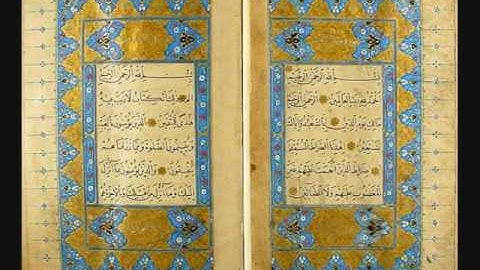 بسم الله الرحمن الرحيم
الحمد لله رب العالمين الرحمن الرحيم
ملك يوم الدين اياك نعبد واياك
نستعين اهدنا الصراط المستقيم
صراط الذين انعمت عليهم غير
المغضوب عليهم ولا الضالين
بسم الله الرحمن الرحيم
الم ذلك الكتاب لا ريب فيه
هدى للمتقين الذين يؤمنون بالغيب
ويقيمون الصلوة ومما رزقناهم
ينفقون والذين يؤمنون بما انزل
اليك وما انزل من قبلك وبالاخرة هم